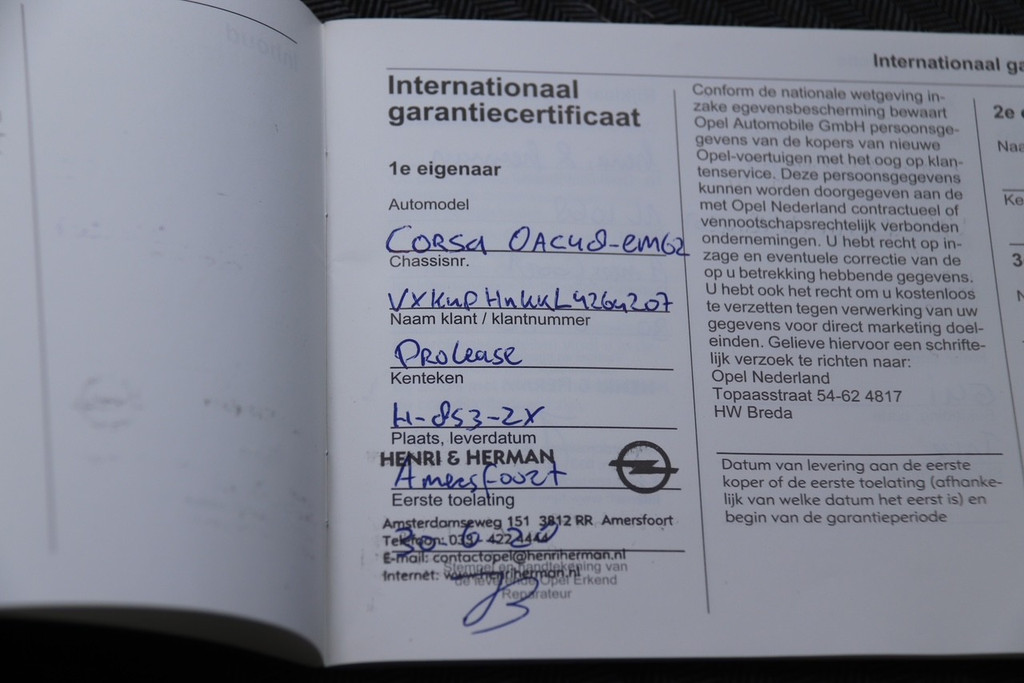 Internationaal ga
Internationaal
garantiecertificaat
1e eigenaar
Automodel
Corsa
Chassisnr.
Naam klant / klantnummer
Prolease
Kenteken
H-853-ZX
Plaats, leverdatum
HENRI & HERMAN
Amersfoort
Eerste toelating
Amsterdamseweg 151 3812 RR Amersfoort
Telefoon: 033- 4224444
30 6 20
E-mail: contactopel@henriherman.nl
Internet: www.henriherman.nl
Stempel en handtekening van
de leverende Opel Erkend
Reparateur
Conform de nationale wetgeving in-
zake egevensbescherming bewaart
Opel Automobile GmbH persoonsge-
gevens van de kopers van nieuwe
Opel-voertuigen met het oog op klan-
tenservice. Deze persoonsgegevens
kunnen worden doorgegeven aan de
met Opel Nederland contractueel of
vennootschapsrechtelijk verbonden
ondernemingen. U hebt recht op in-
zage en eventuele correctie van de
op u betrekking hebbende gegevens.
U hebt ook het recht om u kostenloos
te verzetten tegen verwerking van uw
gegevens voor direct marketing doel-
einden. Gelieve hiervoor een schrifte-
lijk verzoek te richten naar:
Opel Nederland
Topaasstraat 54-62 4817
HW Breda
Datum van levering aan de eerste
koper of de eerste toelating (afhanke-
lijk van welke datum het eerst is) en
begin van de garantieperiode
2e
Naa
Ke
3